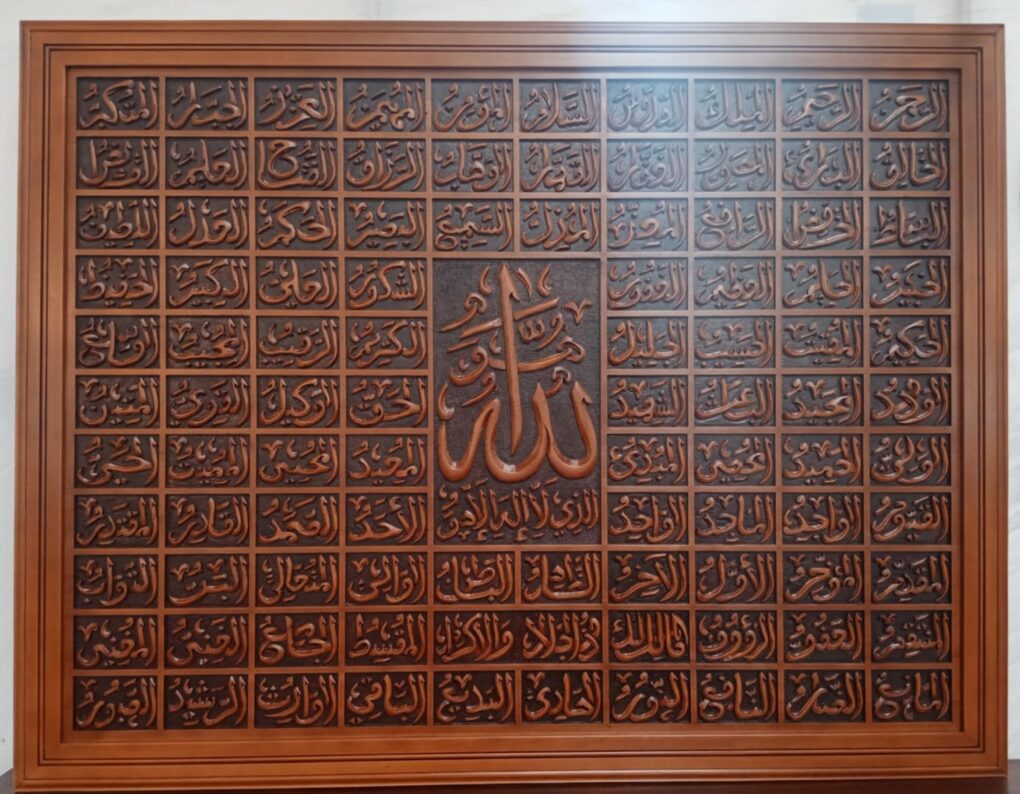 الرحمن الرحيم الملك القدوس السلام المؤمن المهيمن العزيز الجبار المتكبر
الخالق البارئ المصور الغفار القهار الوهاب الرزاق الفتاح العليم القابض
الباسط الخافض الرافع المعز المذل السميع البصير الحكم العدل اللطيف
الخبير الحليم العظيم الغفور الشكور العلي الكبير الحفيظ
الحكيم المقيت الحسيب الجليل الكريم الرقيب المجيب الواسع
الودود المجيد الباعث الشهيد الحق الوكيل القوي المتين
الولي الحميد المحصي المبدئ المعيد المحيي المميت الحي
القيوم الواجد الماجد الواحد الأحد الصمد القادر المقتدر
هو الله
الذي لا إله إلا هو
المقدم المؤخر الأول الآخر الظاهر الباطن الوالي المتعالي البر التواب
المنتقم العفو الرؤوف مالك الملك ذو الجلال والإكرام المقسط الجامع الغني المغني
المانع الضار النافع النور الهادي البديع الباقي الوارث الرشيد الصبور